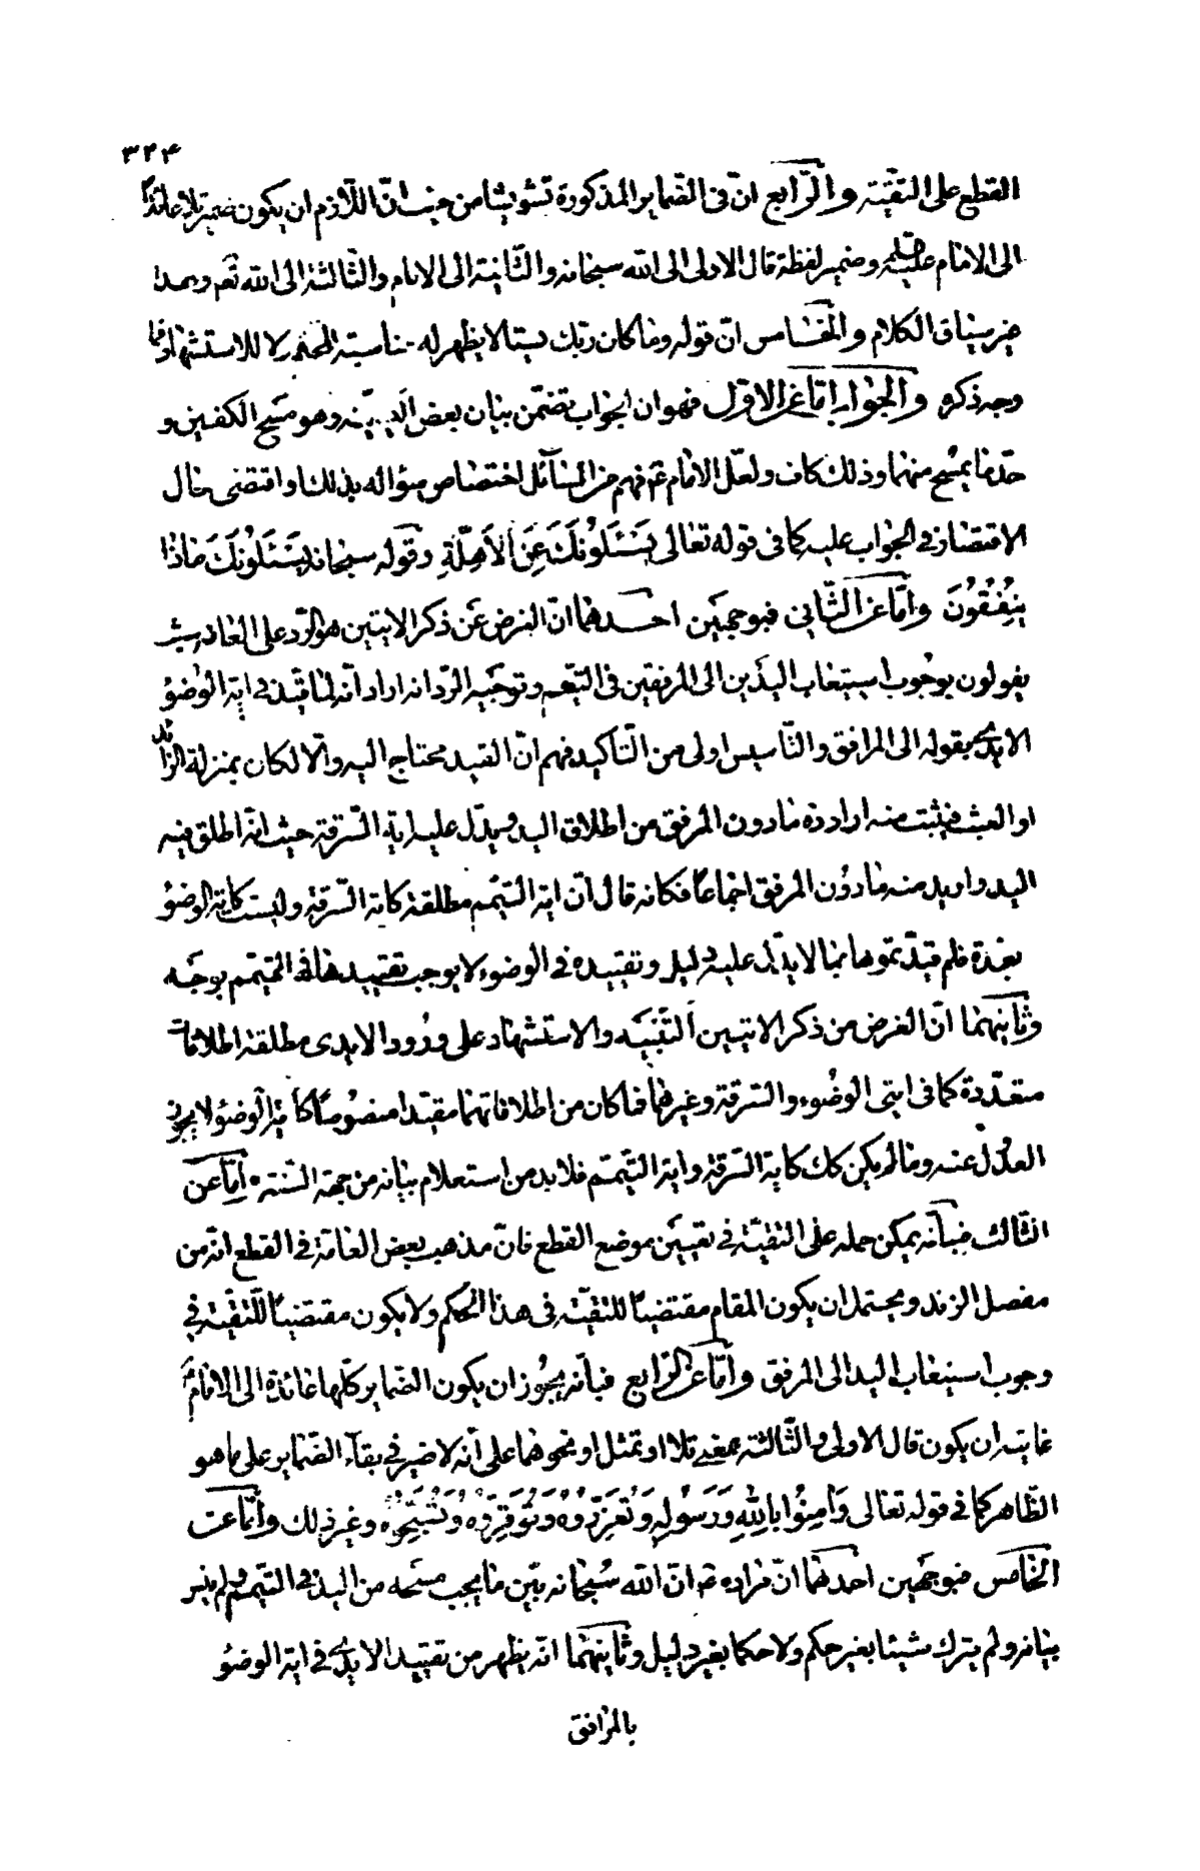 ۳۲۴
القطع على التقيّة والرّابع انّ فى الضّماير المذكورة تشويشا من حيث انّ اللّازم ان يكون ضمير تلا عائدًا
الى الامام عليه السلم وضمير لفظة قال الاولى الى الله سبحانه والثّانية الى الامام والثّالثة الى الله تعم وبعدا
عن سياق الكلام والخامس انّ قوله وما كان ربّك نسيّا لا يظهر له مناسبة المختم ولا للاستشهاد فما
وجه ذكره والجواب امّا عن الاوّل فهو ان الجواب تضمّن بيان بعض الديته وهو مسح الكفين و
حدّ ما يمسح منهما وذلك كاف ولعلّ الامام ع فهم من السّائل اختصاص سؤاله بذلك او اقتضى حال
الاقتصار فى الجواب عليه كما فى قوله تعالى يَسْئَلُونَكَ عَنِ الْاَهِلَّةِ وقوله سبحانه يَسْئَلُونَكَ مَاذَا
يُنْفِقُونَ وامّا عن الثّانى فبوجهين احدهما انّ الغرض عن ذكر الايتين هو الرّد على العامة حيث
يقولون بوجوب استيعاب اليدين الى المرفقين فى التيمم وتوجيه الرّد انه اراد انّه لمّا قيّد فى اية الوضوء
الايدى بقوله الى المرافق والتّاسيس اولى من التّاكيد فهم انّ القيد محتاج اليه والّا لكان بمنزلة الزّائد
او العبث فيثبت منه ارادة ما دون المرفق من اطلاق اليد ويدلّ عليه اية السّرقة حيث انّه اطلق فيه
اليد واريد منه ما دون المرفق اجماعا فكانه قال انّ اية التيمّم مطلقة كاية السّرقة وليست كاية الوضوء
مقيدة فلم قيّدتموها بما لا يدّل عليه دليل وتقييده فى الوضوء لا يوجب تقييدها فى التيمّم بوجه
وثانيهما انّ الغرض من ذكر الايتين التّنبيه والاستشهاد على ورود الايدى مطلقة اطلاقات
متعدّدة كما فى ايتى الوضوء والسّرقة وغيرهما فما كان من اطلاقاتهما مقيّدا منصوصًا كاية الوضوء لا يجوز
العدول عنه وما لم يكن كك كاية السّرقة واية التيمّم فلا بد من استعلام بيانه من جهة السّنة وامّا عن
الثّالث فبانّه يمكن حمله على التّقيّة فى تعيين موضع القطع فانّ مذهب بعض العامّة فى القطع انّه من
مفصل الزند ويحتمل ان يكون المقام مقتضيًا للتقيّة فى هذا الحكم ولا يكون مقتضيًا للتّقيّة فى
وجوب استيعاب اليد الى المرفق وامّا عن الرّابع فبانّه يجوز ان يكون الضّماير كلّها عائدة الى الامام ع
غايته ان يكون قال الاولى والثّالثة بمعنى تلا او تمثل او نحوهما على انّه لا ضير فى بقاء الضّماير على ما هو
الظّاهر كما فى قوله تعالى وَآمِنُوا بِاللهِ وَرَسُولِهِ وَتُعَزِّرُوهُ وَتُوَقِّرُوهُ وَتُسَبِّحُوهُ وغير ذلك وامّا عن
الخامس فبوجهين احدهما انّ مراده ع انّ الله سُبحانه بيّن ما يجب مسحه من اليد فى التيمّم ولم ينس
بيانه ولم يترك شيئا بغير حكم ولا حكما بغير دليل وثانيهما انّه يظهر من تقييد الايدى فى اية الوضوء
بالمرافق